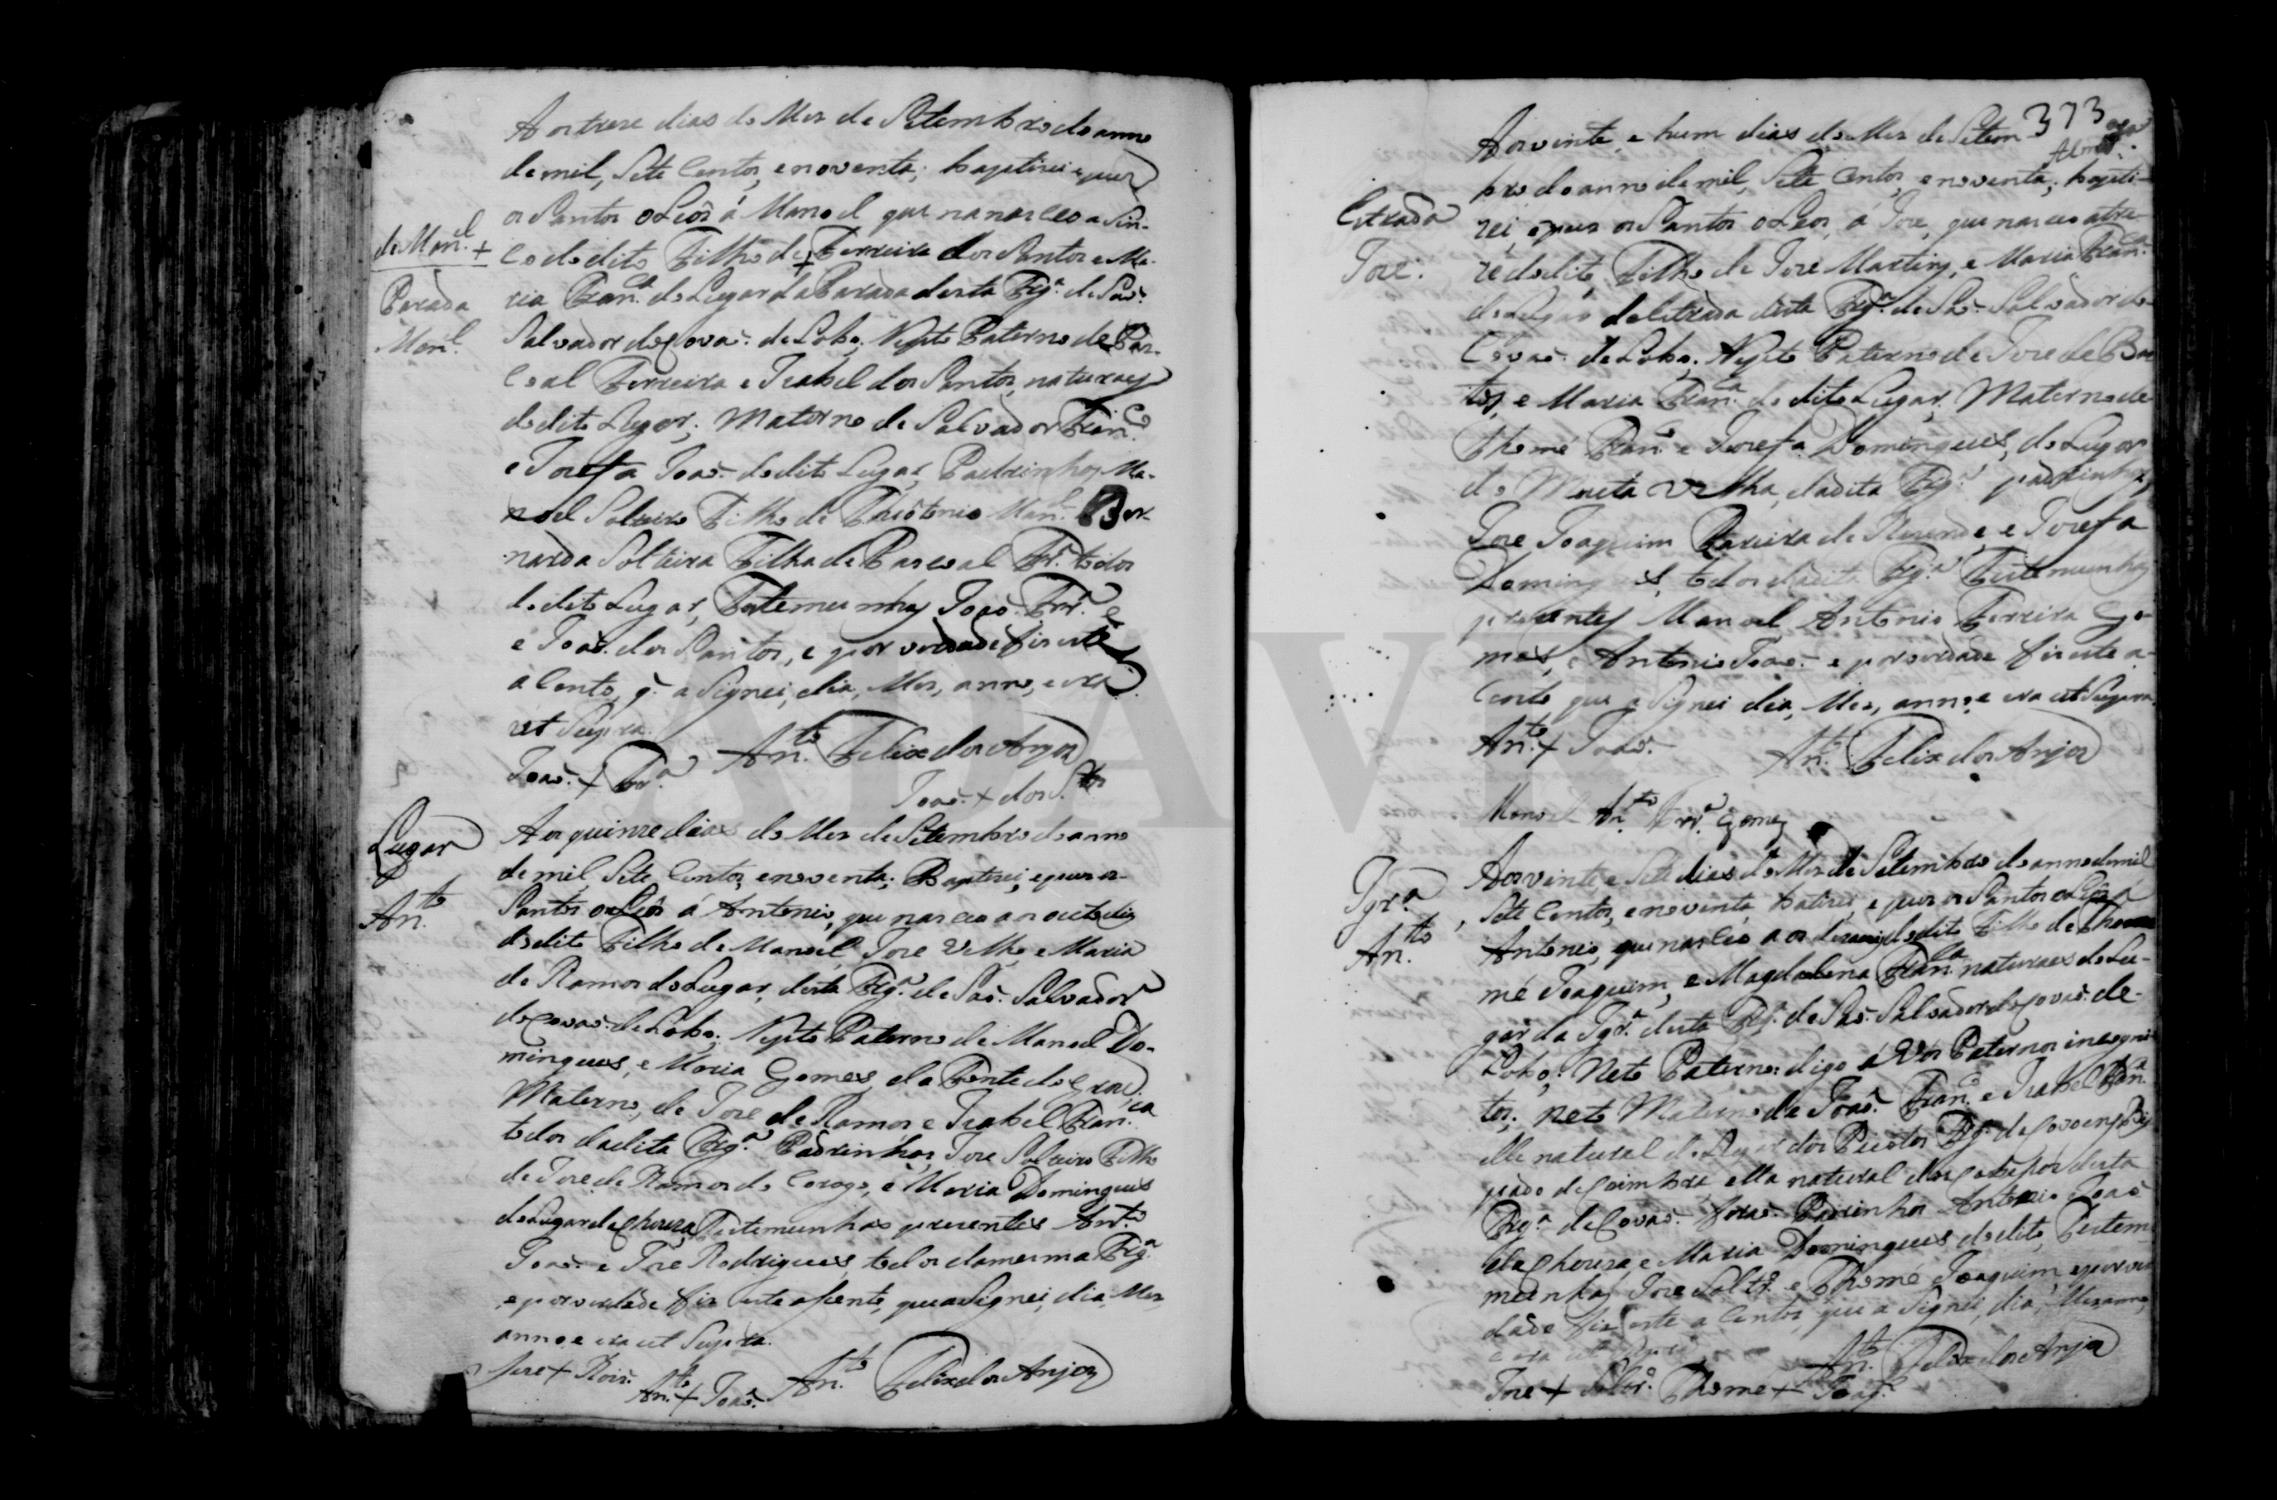 Aos treze dias do Mez de Setembro do anno
de mil, Sete Centos, e noventa; baptizei e puz
os Santos oLeos á Manoel que na nasceo a Sin-
de Man.el +
co do dito Filho de + Ferreira dos Santos e Ma-
Parada
ria Fran.ca do Lugar da Parada desta Frg.a de Sao.
Man.el
Salvador do Covao. do Lobo; Nepto Paterno de Pas-
coal Ferreira e Izabel dos Santos, naturaes
do dito Lugar; Materno de Salvador Fran.co
e Josefa Joao. do dito Lugar, Padrinhos Ma-
noel Solteiro Filho de Theotonio Man.el Ber-
narda Solteira Filha de Pascoal Fr.a todos
do dito Lugar, Testemunhas Joao. Frr.a e
e Joao. dos Santos, e por verdade fiz este
a Cento, q. a Signei, dia, Mez, anno, e era
ut Supra.
An.to Felix dos Anjos
Joao. + Frr.a
Joao. + dos S.tos
Lugar
Aos quinze dias do Mez de Setembro do anno
de mil, Sete Centos, e noventa; Baptizei, e puz os
An.to
Santos oLeos á Antonio, que nasceo aos outo dias
do dito Filho de Manoel Joze Velho, e Maria
de Ramos do Lugar, desta Frg.a de Sao. Salvador
do Covao. do Lobo; Nepto Paterno de Manoel Do-
mingues, e Maria Gomes, da Fonte do Grou
Materno, de Joze de Ramos e Izabel Fran.ca
todos da dita Frg.a Padrinhos, Joze Solteiro Filho
de Joze de Ramos do Corogo, e Maria Domingues
do Lugar da Chouza, Testemunhas prezentes Ant.o
Joao. e Joze Rodrigues, todos da mesma Frg.a
e por verdade fiz este aSento, que aSignei, dia, Mez
anno e era ut Supra.
Joze + Roiz.
An.to + Joao. An.to Felix dos Anjos
373
Aos vinte, e hum dias do Mez de Setem
bro do anno de mil, Sete Centos, e noventa; bapti-
Estrada
zei, e puz os Santos oLeos, á Joze, que nasceo a tre-
Joze.
ze do dito, Filho de Joze Martins, e Maria Fran.ca
do Lugar da Estrada desta Frg.a de Sao. Salvador do
Covao. do Lobo; Nepto Paterno de Joze de Bas
tos, e Maria Fran.ca do dito Lugar, Materno de
Thomé Fran.co e Josefa Domingues, do Lugar
da Moreta Velha, da dita Frg.a padrinhos,
Joze Joaquim Pareira de Rezende, e Josefa
Domingues, todos da dita Frg.a Testemunhas
prezentes Manoel Antonio Ferreira Go-
mes, e Antonio Joao. e por verdade fiz este a
Cento que a Signei dia, Mez, anno, e era ut Supra.
An.to + Joao. An.to Felix dos Anjos
Manoel An.to Frr.a Gomes
Igr.a
Aos vinte, e Sete dias do Mez de Setembro do anno de mil
Sete Centos, e noventa, batizei, e puz os Santos oLeos á
An.to
Antonio, que nasceo aos dezaceis do dito Filho de Tho
mé Joaquim, e Magdalena Fran.ca naturaes do Lu-
gar da Igr.a desta Frg.a de Sao. Salvador do Covao. do
Lobo; Neto Paterno: digo á Vós Paternos incogni
tos; neto Materno de Joao. Fran.co e Izabel Fran.ca
elle natural do Lugar dos Frg.a de Bis
pado de Coimbra, ella natural dos desta
Frg.a de Covao. foraó. Padrinhos Antonio Joao
da Chouza, e Maria Domingues do dito, Testem
munhas Joze Solt.ro e Thomé Joaquim e por ver
dade fiz este a Cento, que a Signei, dia, Mez anno,
e era ut Supra
An.to Felix dos Anjos
Joze + Solt.ro Thome + Joaq.m